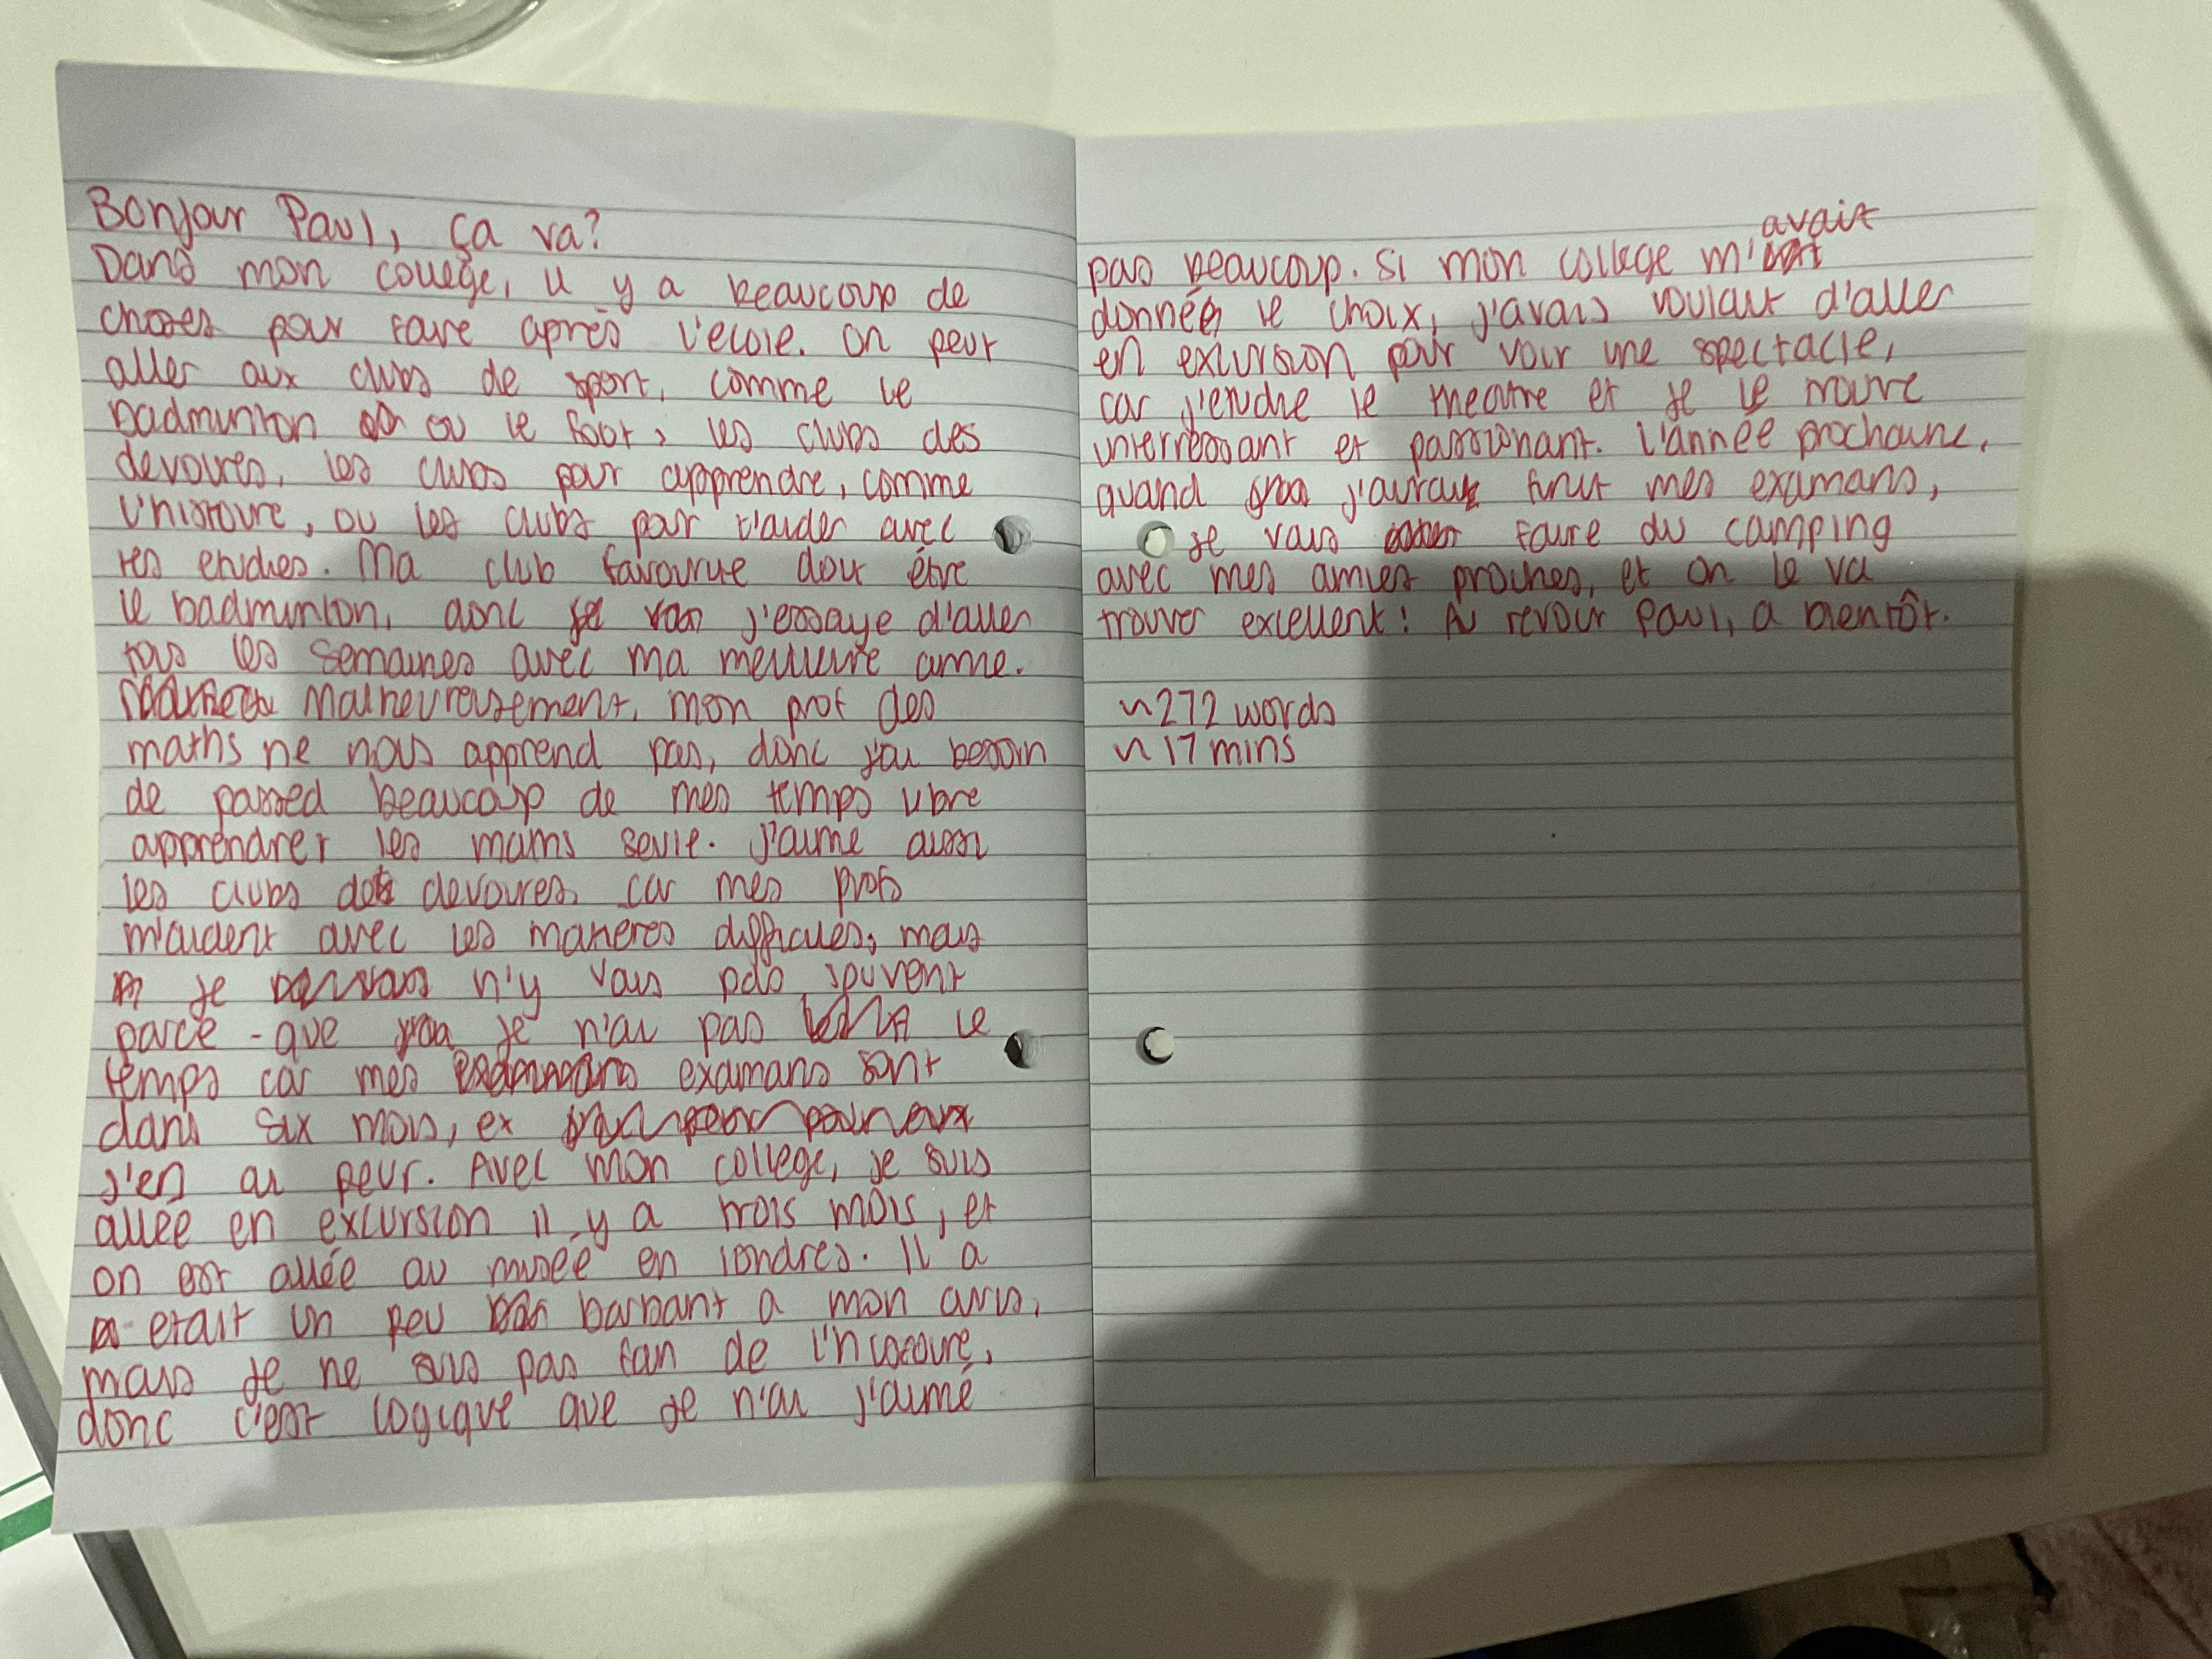 Bonjour Paul, ça va?
Dans mon college, il y a beaucoup de
choses pour faire après l'ecole. On peut
aller aux clubs de sport, comme le
badminton ou le foot, les clubs des
devoires, les clubs pour apprendre, comme
l'histoire, ou les clubs pour t'aider avec
tes etudies. Ma club favourite doit être
le badminton, donc j'essaye d'aller
tous les semaines avec ma meilleure amie.
Malheureusement, mon prof des
maths ne nous apprend pas, donc j'ai besoin
de passed beaucoup de mes temps libre
apprendrer les maths seule. J'aime aussi
les clubs des devoires, car mes profs
m'aident avec les matieres difficiles, mais
je n'y vais pas souvent
parce-que je n'ai pas le
temps car mes examans sont
dans six mois, et
j'en ai peur. Avec mon college, je suis
allée en excursion il y a trois mois, et
on est allée au museé en londres. Il a
etait un peu barbant a mon avis,
mais je ne suis pas fan de l'histoire,
donc c'est logique que je n'ai j'aimé
pas beaucoup. Si mon college m'avait
donnée le choix, j'avais voulait d'aller
en excursion pour voir une spectacle,
car j'etudie le theatre et je le trouve
interressant et passionant. L'année prochaine,
quand j'aurai finit mes examans,
je vais faire du camping
avec mes amies proches, et on le va
trouver excellent! Au revoir Paul, a bientôt.
~272 words
~17 mins